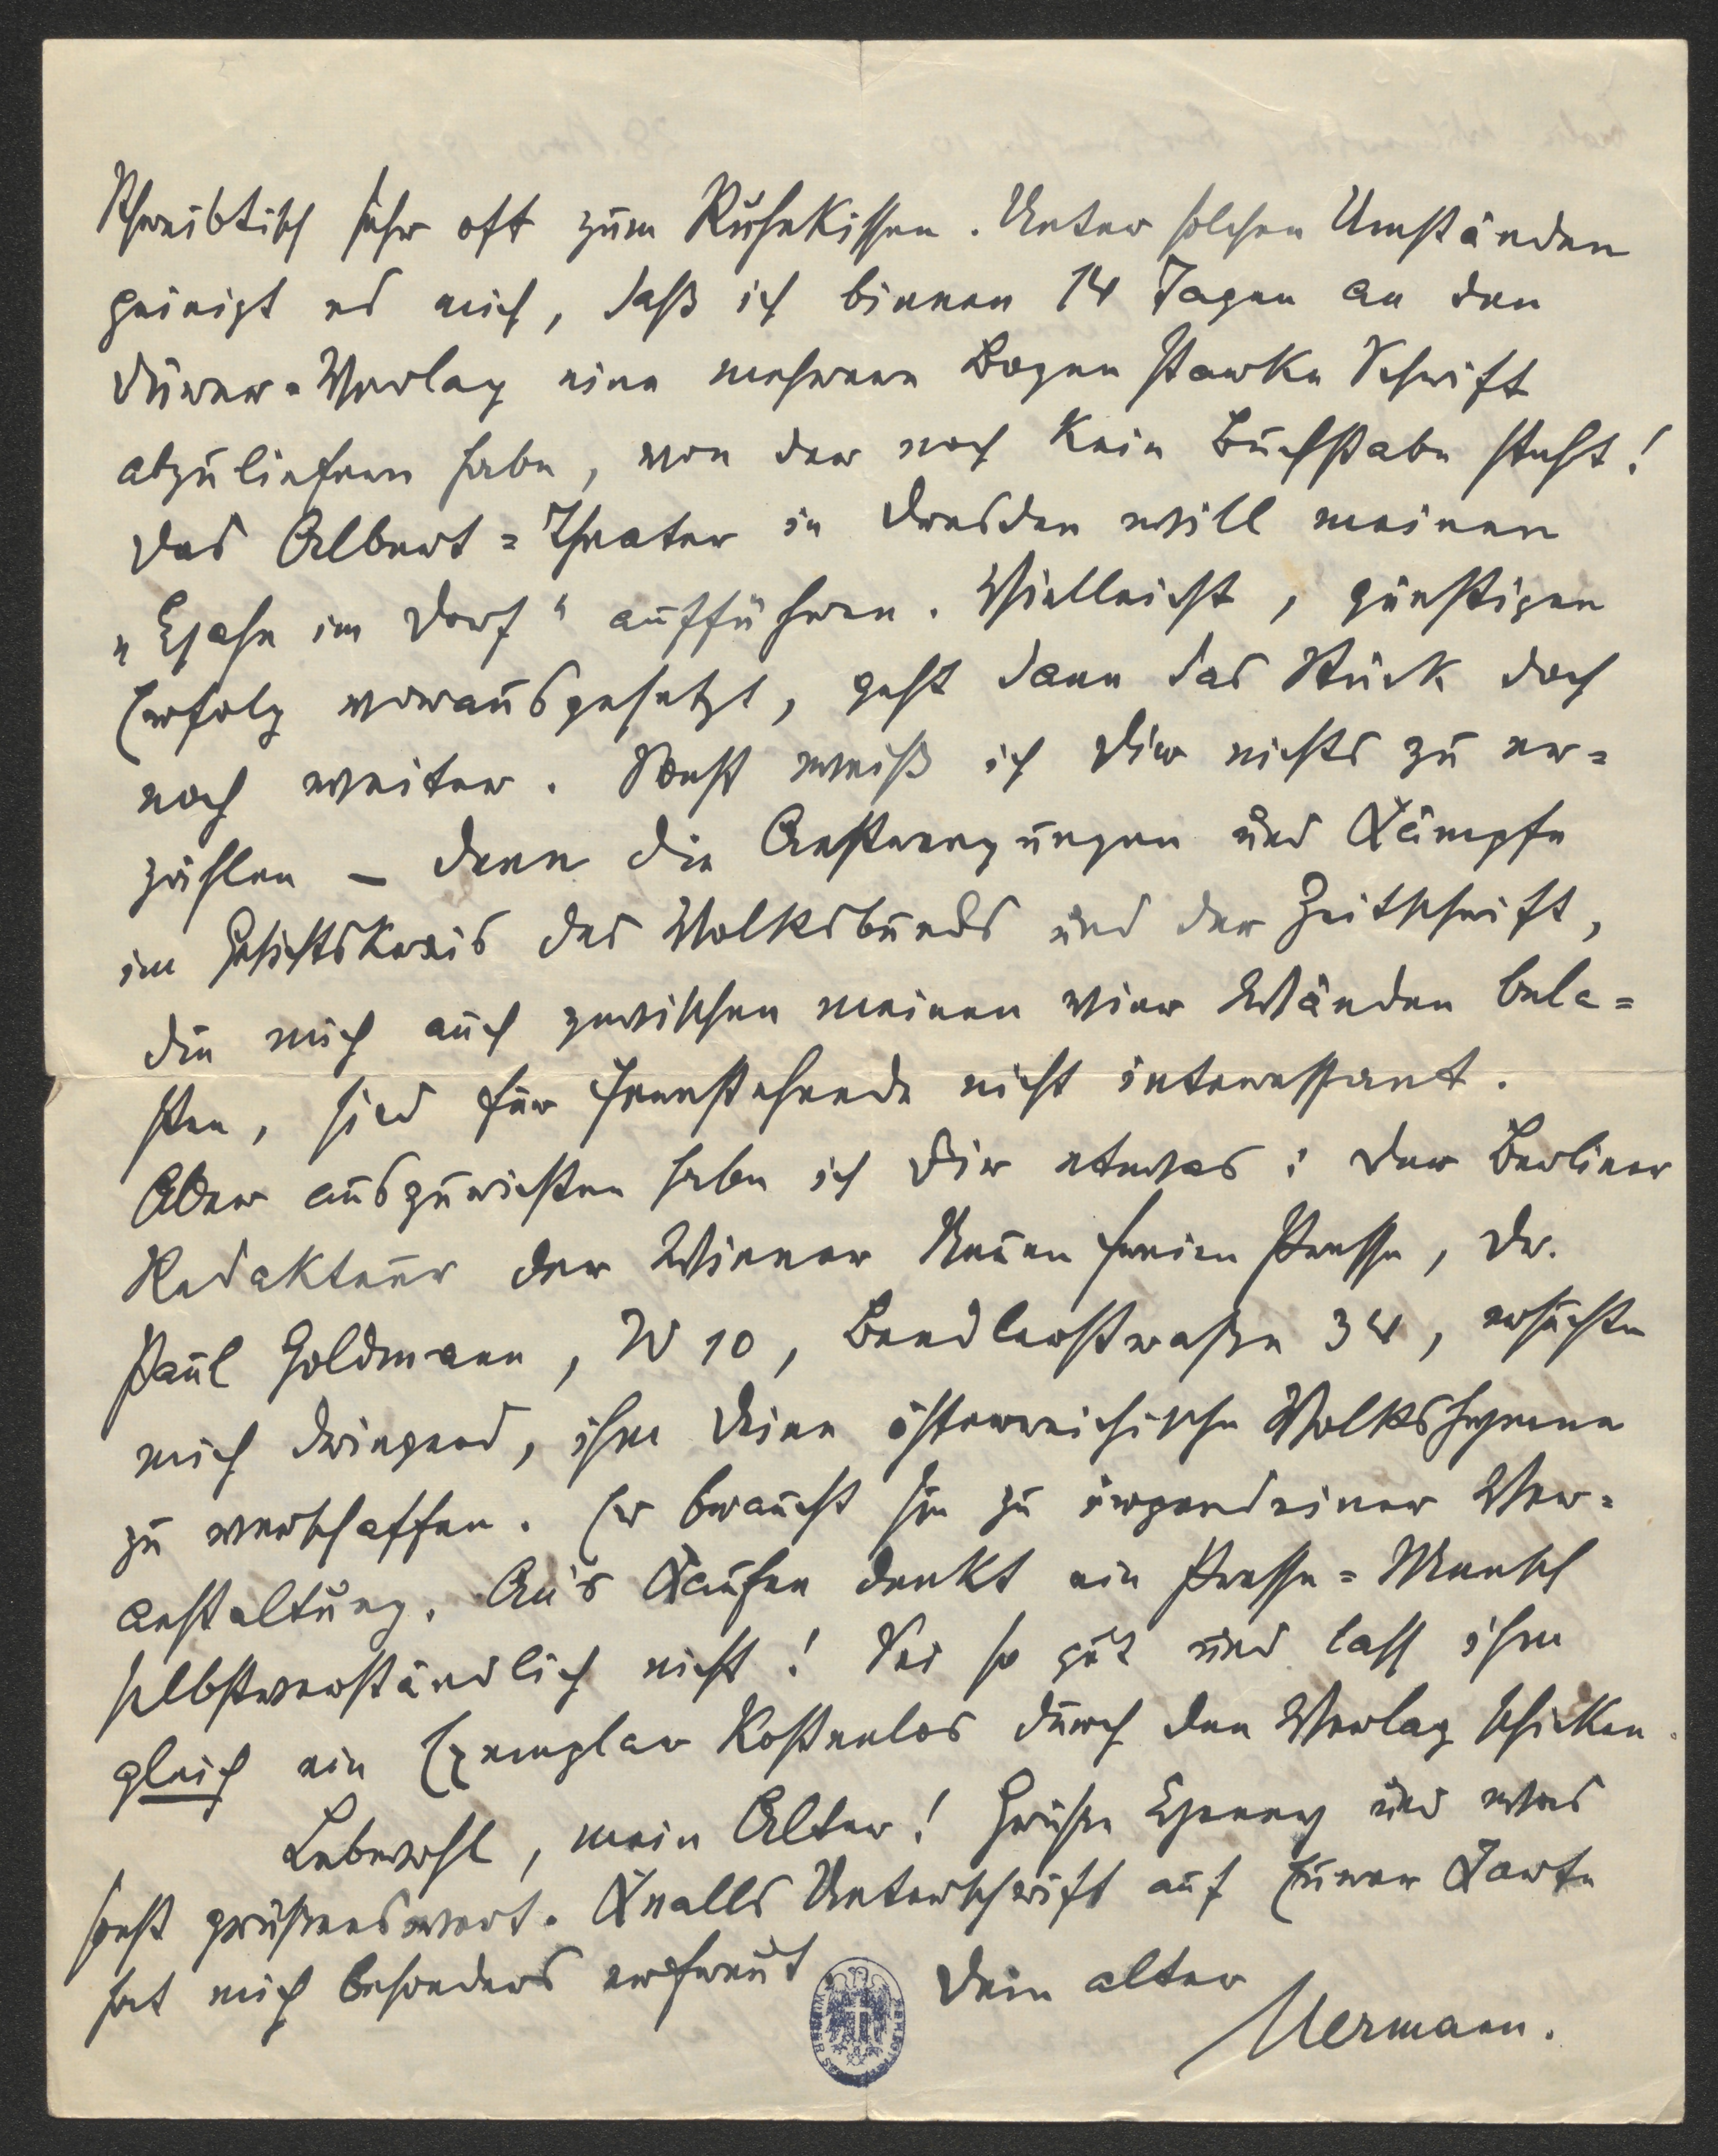 Schreibtisch sehr oft zum Ruhekissen. Unter solchen Umständen
peinigt es mich, daß ich binnen 14 Tagen an den
Dürer-Verlag eine mehrere Bogen starke Schrift
abzuliefern habe, von der noch kein Buchstabe steht!
Das Albert-Theater in Dresden will meinen
„Hahn im Dorf“ aufführen. Vielleicht, günstigen
Erfolg vorausgesetzt, geht dann das Stück doch
noch weiter. Sonst weiß ich Dir nichts zu er-
zählen – denn die Anstrengungen und Kämpfe
im Gesichtskreis des Volksbunds und der Zeitschrift,
die mich auch zwischen meinen vier Wänden bela-
sten, sind für Fernstehende nicht interessant.
Aber auszurichten habe ich Dir etwas: Der Berliner
Redakteur der Wiener Neuen freien Presse, Dr.
Paul Goldmann, W 10, Bendlerstrasse 34, ersuchte
mich dringend, ihm Deine österreichische Volkshymne
zu verschaffen. Er braucht sie zu irgendeiner Ver-
anstaltung. An's Kaufen denkt ein Presse-Mensch
selbstverständlich nicht! Sei so gut und lass ihm
gleich ein Exemplar kostenlos durch den Verlag schicken.
Lebewohl, mein Alter! Grüße Henny und was
sonst grüßenswert. Knalls Unterschrift auf Eurer Karte
hat mich besonders erfreut. Dein alter
Hermann.